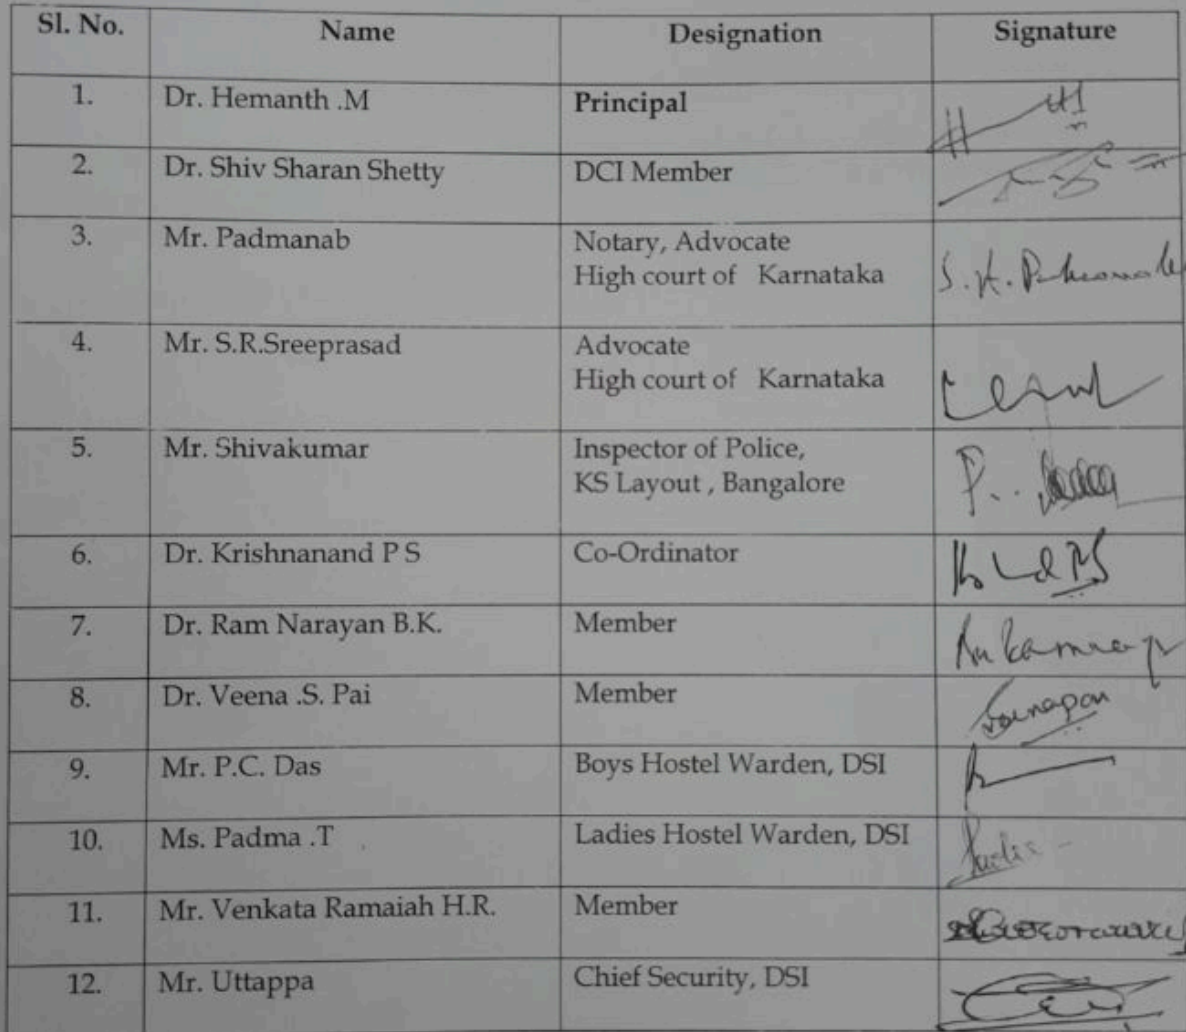 Sl. No. Name Designation Signature
1. Dr. Hemanth .M Principal
2. Dr. Shiv Sharan Shetty DCI Member
3. Mr. Padmanab Notary, Advocate
High court of Karnataka
4. Mr. S.R.Sreeprasad Advocate
High court of Karnataka
5. Mr. Shivakumar Inspector of Police,
KS Layout , Bangalore
6. Dr. Krishnanand P S Co-Ordinator
7. Dr. Ram Narayan B.K. Member
8. Dr. Veena .S. Pai Member
9. Mr. P.C. Das Boys Hostel Warden, DSI
10. Ms. Padma .T Ladies Hostel Warden, DSI
11. Mr. Venkata Ramaiah H.R. Member
12. Mr. Uttappa Chief Security, DSI